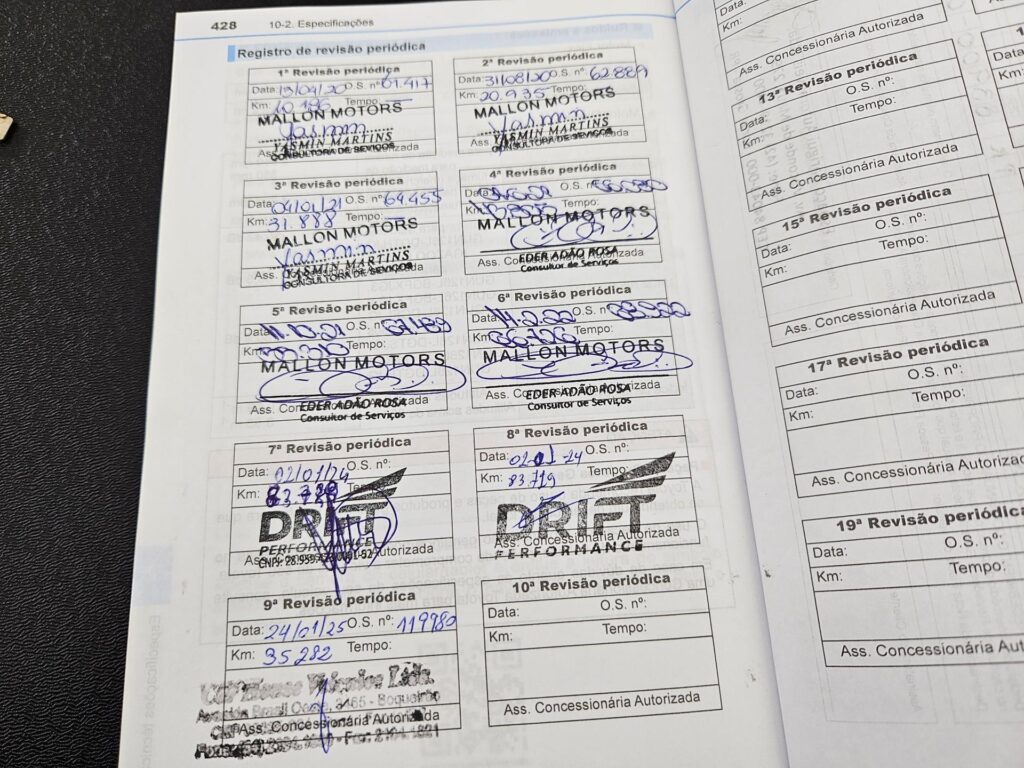 428 10-2. Especificações
Registro de revisão periódica
1ª Revisão periódica
Data: 13/04/20 O.S. nº: 61.417
Km: 10.196 Tempo:
MALLON MOTORS
Yasmin
YASMIN MARTINS
CONSULTORA DE SEVIÇOS
Ass. Concessionária Autorizada
2ª Revisão periódica
Data: 31/08/20 O.S. nº: 62.889
Km: 20.935 Tempo:
MALLON MOTORS
Yasmin
YASMIN MARTINS
CONSULTORA DE SEVIÇOS
Ass. Concessionária Autorizada
3ª Revisão periódica
Data: 04/01/21 O.S. nº: 64.455
Km: 31.888 Tempo:
MALLON MOTORS
Yasmin
YASMIN MARTINS
CONSULTORA DE SEVIÇOS
Ass. Concessionária Autorizada
4ª Revisão periódica
Data: O.S. nº:
Km: Tempo:
MALLON MOTORS
EDER ADÃO ROSA
Consultor de Serviços
Ass. Concessionária Autorizada
5ª Revisão periódica
Data: 11.10.21 O.S. nº:
Km: Tempo:
MALLON MOTORS
EDER ADÃO ROSA
Consultor de Serviços
Ass. Concessionária Autorizada
6ª Revisão periódica
Data: 14.2.22 O.S. nº:
Km: Tempo:
MALLON MOTORS
EDER ADÃO ROSA
Consultor de Serviços
Ass. Concessionária Autorizada
7ª Revisão periódica
Data: 02/01/24 O.S. nº:
Km: Tempo:
DRIFT
PERFORMANCE
Ass. Concessionária Autorizada
8ª Revisão periódica
Data: 02 01 24 O.S. nº:
Km: 83.719 Tempo:
DRIFT
PERFORMANCE
Ass. Concessionária Autorizada
9ª Revisão periódica
Data: 24/01/25 O.S. nº: 119980
Km: 35282 Tempo:
Ltda.
Brasil
Ass. Concessionária Autorizada
10ª Revisão periódica
Data: O.S. nº:
Km: Tempo:
Ass. Concessionária Autorizada
Data:
Km:
Ass. Concessionária Autorizada
13ª Revisão periódica
Data: O.S. nº:
Km: Tempo:
Ass. Concessionária Autorizada
15ª Revisão periódica
Data: O.S. nº:
Km: Tempo:
Ass. Concessionária Autorizada
17ª Revisão periódica
Data: O.S. nº:
Km: Tempo:
Ass. Concessionária Autorizada
19ª Revisão periódica
Data: O.S. nº:
Km: Tempo:
Ass. Concessionária Autorizada